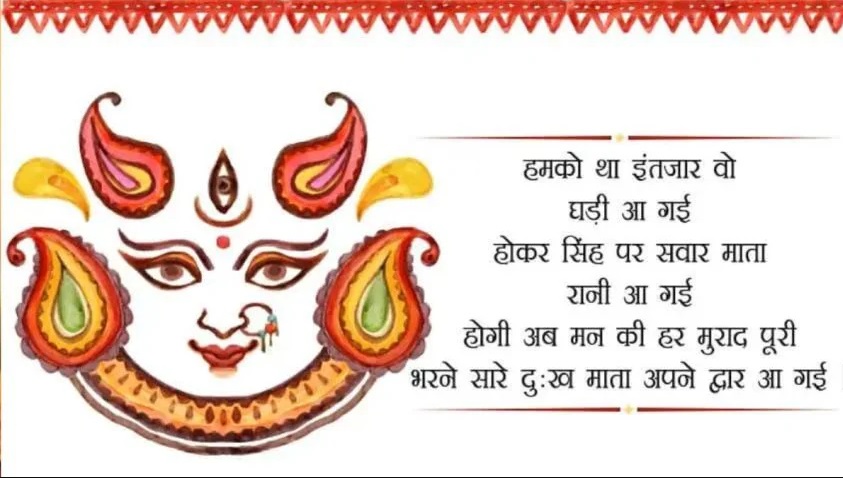 हमको था इंतजार वो
घड़ी आ गई
होकर सिंह पर सवार माता
रानी आ गई
होगी अब मन की हर मुराद पूरी
भरने सारे दुःख माता अपने द्वार आ गई।